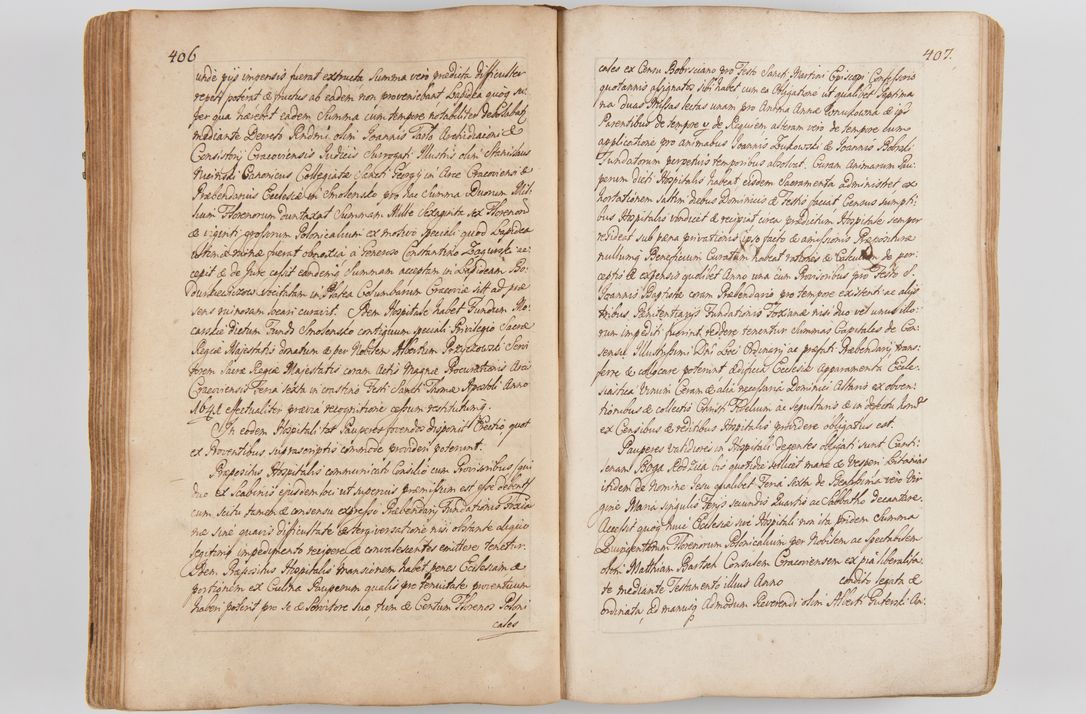 406
unde pijs impensis fuerat extructa Summa vero prædicta difficulter
reperi poterat & fructus ab eadem non proveniebant Lapidea quoq su-
per qua hærebat eadem Summa cum tempore notabiliter
mediante Decreto olim Ioannis Archidiaconi &
Consistorij Cracoviensis Iudicis Surrogati Illustris olim Stanislaus
Canonicus Collegiatæ Sancti Georgij in Arce Cracoviensi &
Præbendarius Ecclesiæ in Smolensko pro hac Summa Duorum Mil-
lium Florenorum duntaxat Summam Mille Sexaginta sex Florenor
& viginti grossorum Polonicalium ex motivo speciali quod Lapidea
fuerat obnoxia a Generoso Constantino ac-
cepit & de Jure cessit eandemq Summam acceptam in Lapideam
vocitatam in Platea Columbarum Cracoviæ sitt ad præ-
sens ruinosam locari curavit. Item Hospitale habet Fundum
dictum Fundo Smolensko contiguum speciali Privilegio Sacræ
Regiæ Majestatis donatum & per Nobilem Albertum Servi
torem Sacræ Regiæ Majestatis coram Actis Magnæ Procurationis Arcis
Cracoviensis Feria sexta in crastino Festi Sancti Thomæ Apostoli Anno
effectualiter prævia recognitione restitutumq.
In eodem Hospitali tot Pauperes fovendos disponit Erectio quot
ex Proventibus suprascriptis commode provideri poterunt.
Præpositus Hospitalis communicato Consilio cum Provisoribus (qui
duo ex Scabinis ejusdem loci ut superius præmissum est esse debent)
cum scitu tamen & consensu expresso Præbendarij Fundationis
næ sine quavis difficultate & tergiversatione nisi obstante aliquo
legitimo impedimento recipere & convalescentes emittere tenetur.
Item Præpositus Hospitalis mansionem habet penes Ecclesiam &
portionem ex Culina Pauperum qualis pro tenuitate proventuum
haberi poterit pro se & Servitore suo, tum & Centum Florenos Poloni
cales
407.
cales ex Censu Bobrsciano pro Festo Sancti Martini Episcopi Confessoris
quotannis assignatos sibi habet cum ea Obligatione ut qualibet septima
na duas Missas lectas unam pro Anima Annæ & ips
Parentibus de tempore de Requiem alteram vero de tempore cum
applicatione pro animabus Ioannis Zukowski & Ioannis
Fundatorum perpetuis temporibus absolvat. Curam Animarum Pau
perum dicti Hospitalis habeat eisdem Sacramenta administret ex
hortationem saltim diebus Dominicis & Festis faciat Census sumpti
bus Hospitalis vindicet & recipiat circa prædictum Hospitale semper
resideat sub pæna privationis ipso facto & amissionis Præposituræ
nullumq Beneficium Curatum habeat rationes & de per-
ceptis & expensis quolibet Anno una cum Provisoribus pro Festo S.
Ioannis Baptistæ coram Præbendario pro tempore existenti ac alijs
tribus Penitentiarijs Fundationis nisi duo vel unus illo-
rum impediti fuerint, reddere tenentur Summas Capitales de Con-
sensu Illustrissimi Dni Loci Ordinarij ac præfati Præbendarij trans-
ferre & collocare poterint Ædificia Ecclesiæ Apparamenta Eccle-
siastica Vinum Ceram & alia necessaria Dominici Altaris ex obven-
tionibus & collectis Christi Fidelium ac sepulturis & in defectu
ex Censibus & reditibus Hospitalis providere obligatus est.
Pauperes validiores in Hospitali degentes obligati sunt Canti-
lenam Boga Rodzica bis quotidie scilicet mane & Vesperi Litanias
itidem de Nomine Iesu qualibet Feria sexta de Beatissima vero Vir
gine Maria singulis Ferijs secundis Quartis ac Sabbatho decantare.
Accessit quoq huic Ecclesiæ sive Hospitali non ita pridem Summa
Quingentorum Florenorum Polonicalium per Nobilem ac Spectabilem
olim Matthiam Consulem Cracoviensem ex pia liberalita-
te mediante Testamento illius Anno condito legata &
ordinata, ad manusq Admodum Reverendi olim Alberti An-